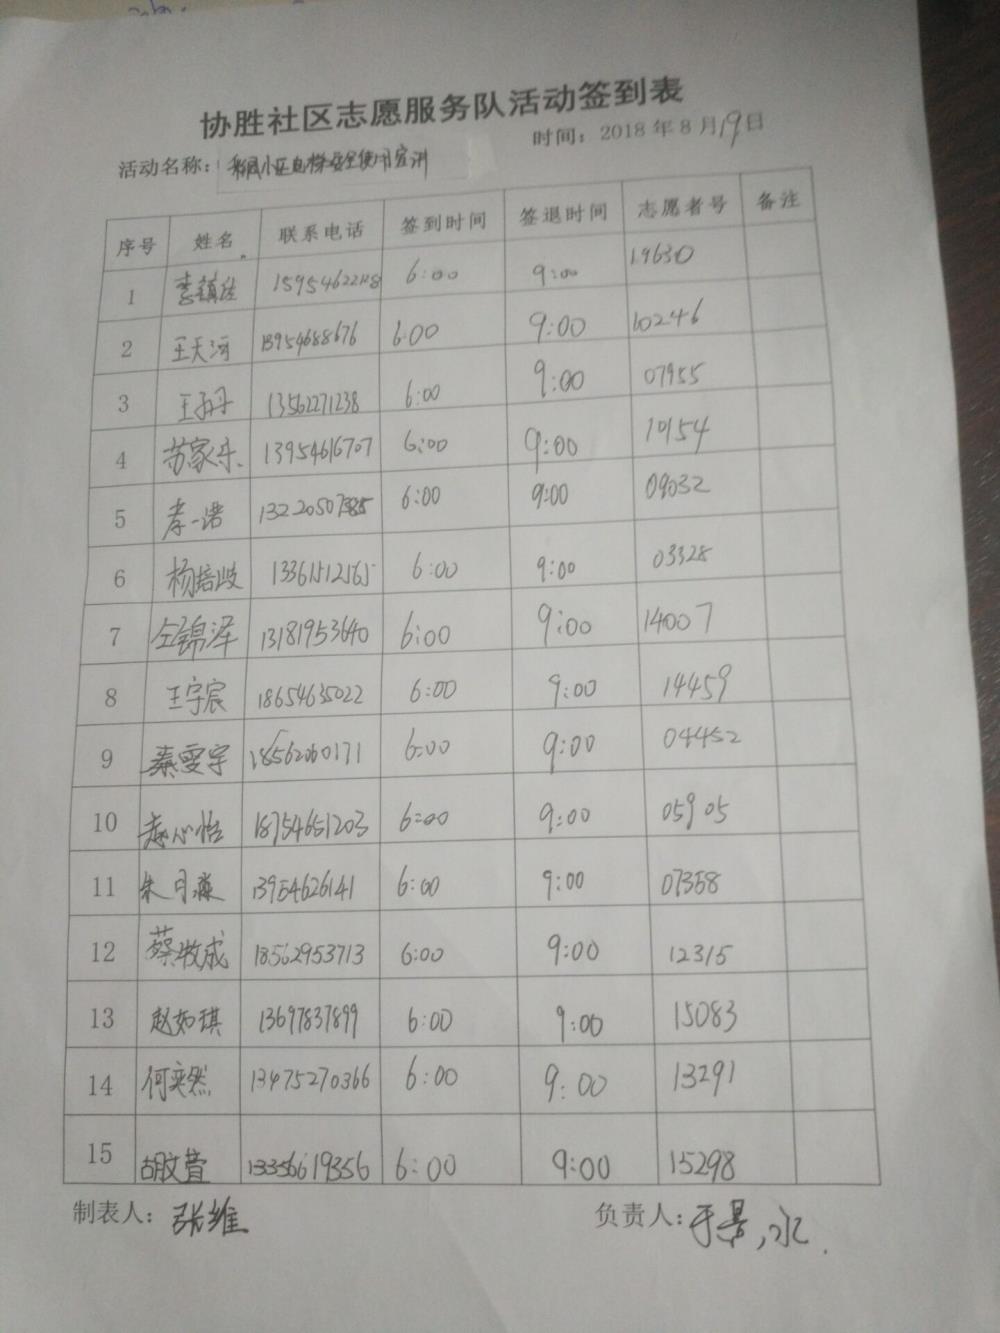 协胜社区志愿服务队活动签到表
时间：2018年8月19日
活动名称：小区电梯安全使用宣讲
序号 姓名 联系电话 签到时间 签退时间 志愿者号 备注
1 李镇 6:00 9:00 19630
2 王天河 13954688676 6:00 9:00 10246
3 王 13562271238 6:00 9:00 07955
4 苏家乐 13954616707 6:00 9:00 10154
5 李一诺 6:00 9:00 09032
6 杨培 13361512165 6:00 9:00 03328
7 仝锦泽 13181953640 6:00 9:00 14007
8 王宇宸 18654635022 6:00 9:00 14459
9 秦雯宇 18562060171 6:00 9:00 04452
10 赵心怡 18754651203 6:00 9:00 05905
11 朱月 13954626141 6:00 9:00 07358
12 蔡牧成 18562953713 6:00 9:00 12315
13 赵如琪 13697837899 6:00 9:00 15083
14 何奕然 13475270366 6:00 9:00 13291
15 胡文萱 13356619356 6:00 9:00 15298
制表人：张维 负责人：于景水